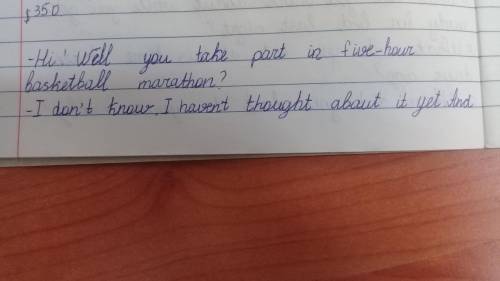 §350
-Hi! Well you take part in five-hour
basketball marathon?
-I don't know, I haven't thought about it yet And